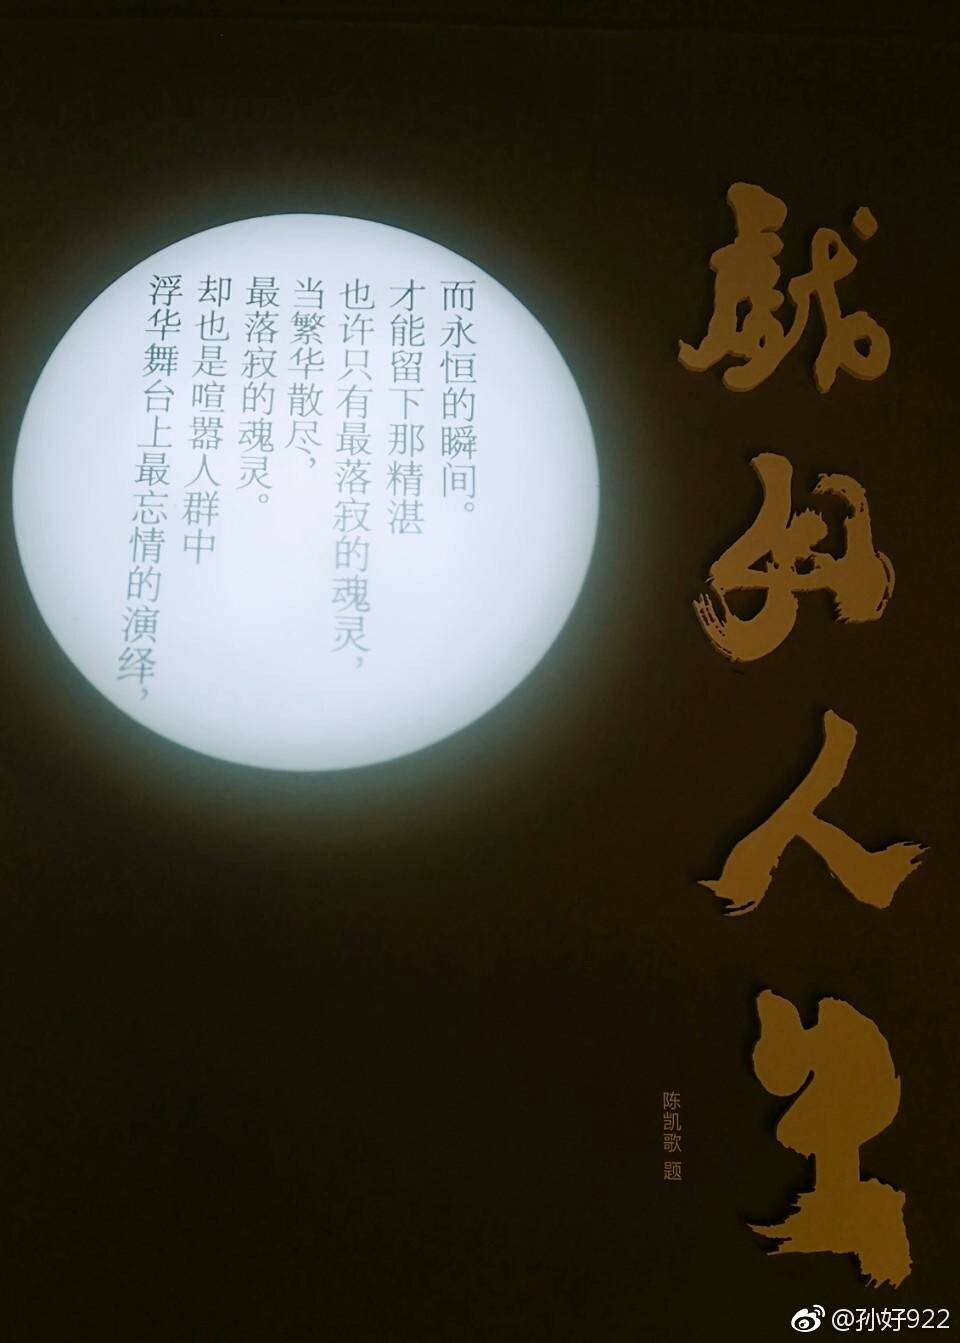 浮华舞台上最忘情的演绎，
却也是喧嚣人群中
最落寂的魂灵。
当繁华散尽，
也许只有最落寂的魂灵，
才能留下那精湛
而永恒的瞬间。
戲如人生
陈凯歌 题
@孙好922